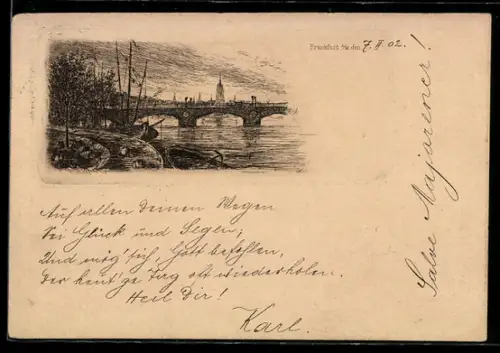 Frankfurt a/M. den 7. II. 02.
Auf allen Deinen Wegen
Sei Glück und Segen;
Und mög' sich, Gott befohlen,
Der heut'ge Tag oft wiederholen.
Heil Dir!
Karl.
Salve Majorener!